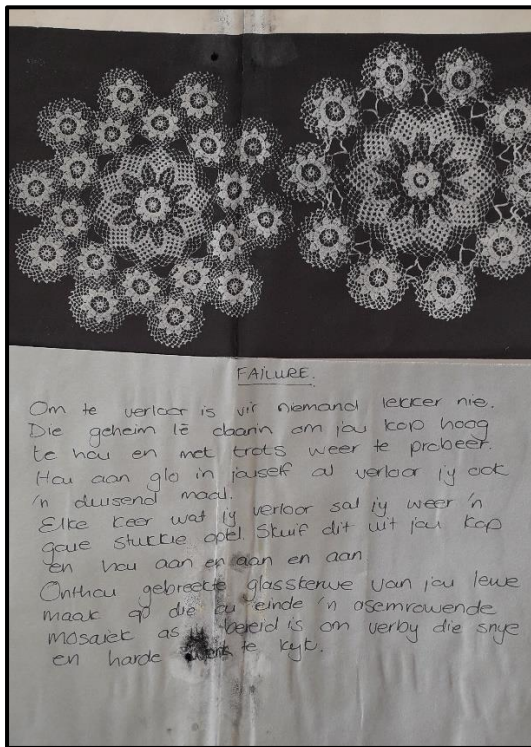 FAILURE.
Om te verloor is vir niemand lekker nie.
Die geheim lê daarin om jou kop hoog
te hou en met trots weer te probeer.
Hou aan glo in jouself al verloor jy ook
'n duisend maal.
Elke keer wat jy verloor sal jy weer 'n
goue stukkie optel. Skuif dit uit jou kop
en hou aan en aan en aan
Onthou gebreekte glasskerwe van jou lewe
maak op die ou einde 'n asemrowende
mosaïek as bereid is om verby die snye
en harde te kyk.